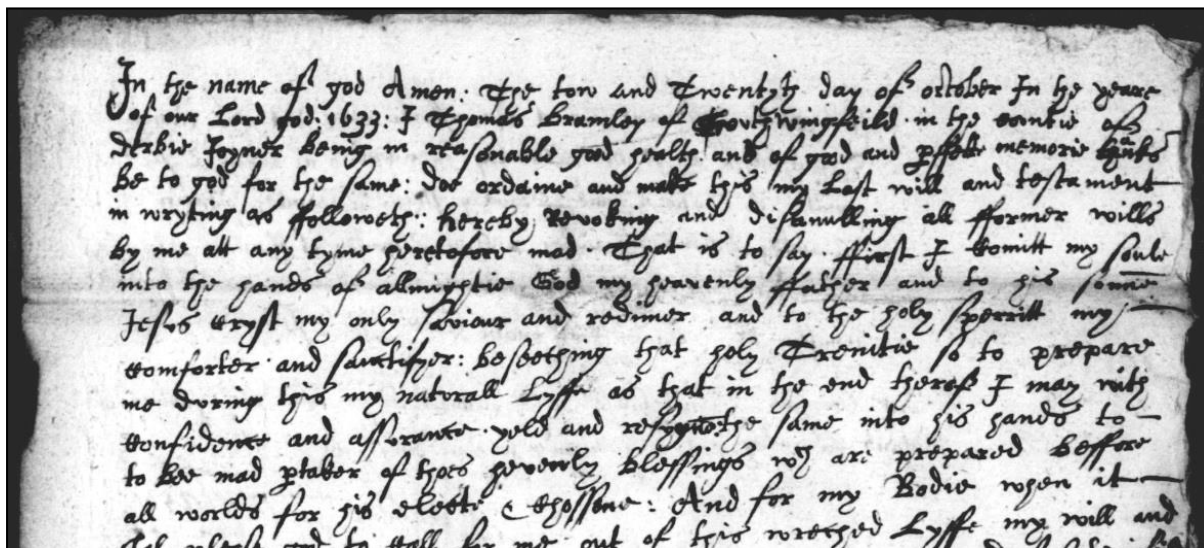 In the name of god Amen: The tow and Twentyth day of october In the yeare
of our Lord god: 1633: I Thomas Bramley of Southwingfeild in the Countie of
derbie Joyner being in reasonable good health and of good and pffecte memorie thanks
be to god for the same: doe ordaine and make this my Last will and testament
in wryting as ffolloweth:: hereby Revoking and disanulling all fformer wills
by me att any tyme heretofore mad. That is to say. ffirst I Comitt my soule
into the hands of allmightie God my heavenly ffather and to his sonne
Jesus Cryst my only saviour and redimer and to the holy sperritt my
Comforter and sanctifyer: beseeching that holy Trenitie so to prepare
me during this my naturall Lyffe as that in the end thereof I may with
Confidence and assurance yeld and resygne the same into his hands to
to bee mad ptaker of thoes hevenly blessings wch are prepared beffore
all worlds for his electe & Chossene: And for my Bodie when it
please god to Call for me out of this wreched Lyffe my will and